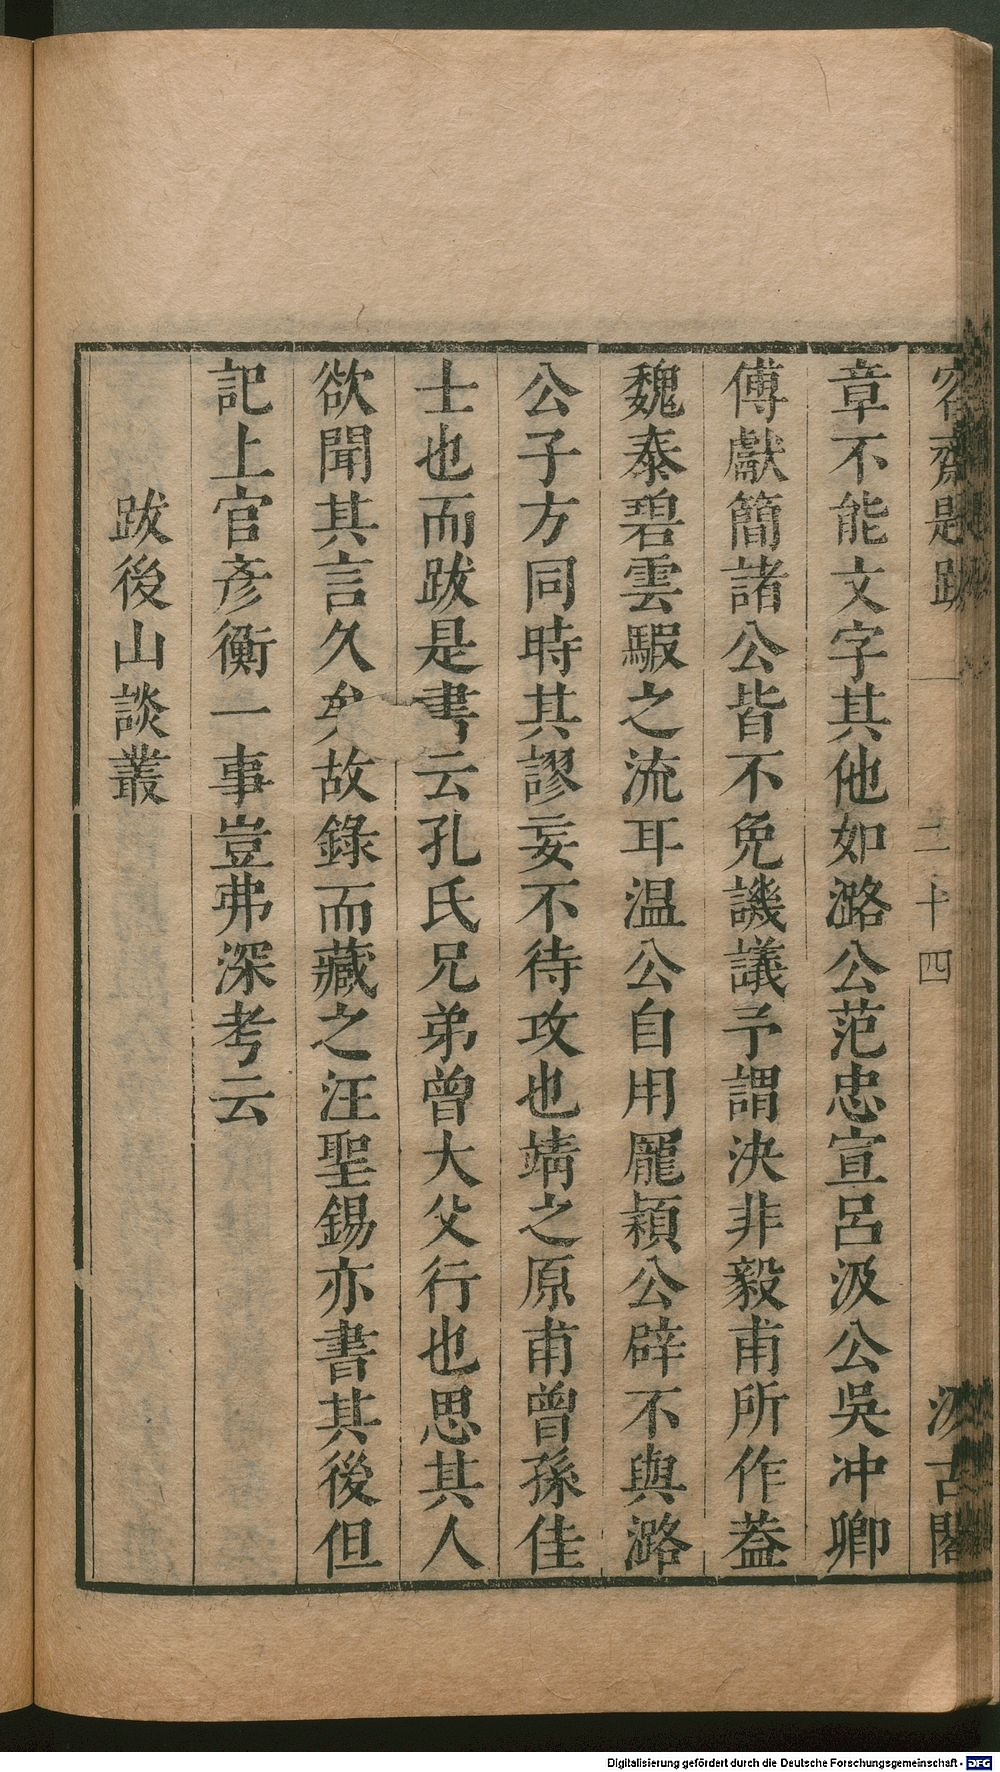 容齋題跋 一 二十四 汲古閣
章不能文字其他如潞公范忠宣呂汲公吳冲卿
傅獻簡諸公皆不免譏議予謂決非毅甫所作葢
魏泰碧雲騢之流耳温公自用龐頴公辟不與潞
公子方同時其謬妄不待攻也靖之原甫曾孫佳
士也而跋是書云孔氏兄弟曾大父行也思其人
欲聞其言久矣故錄而藏之汪聖錫亦書其後但
記上官彥衡一事豈弗深考云
跋後山談叢
Digitalisierung gefördert durch die Deutsche Forschungsgemeinschaft - DFG